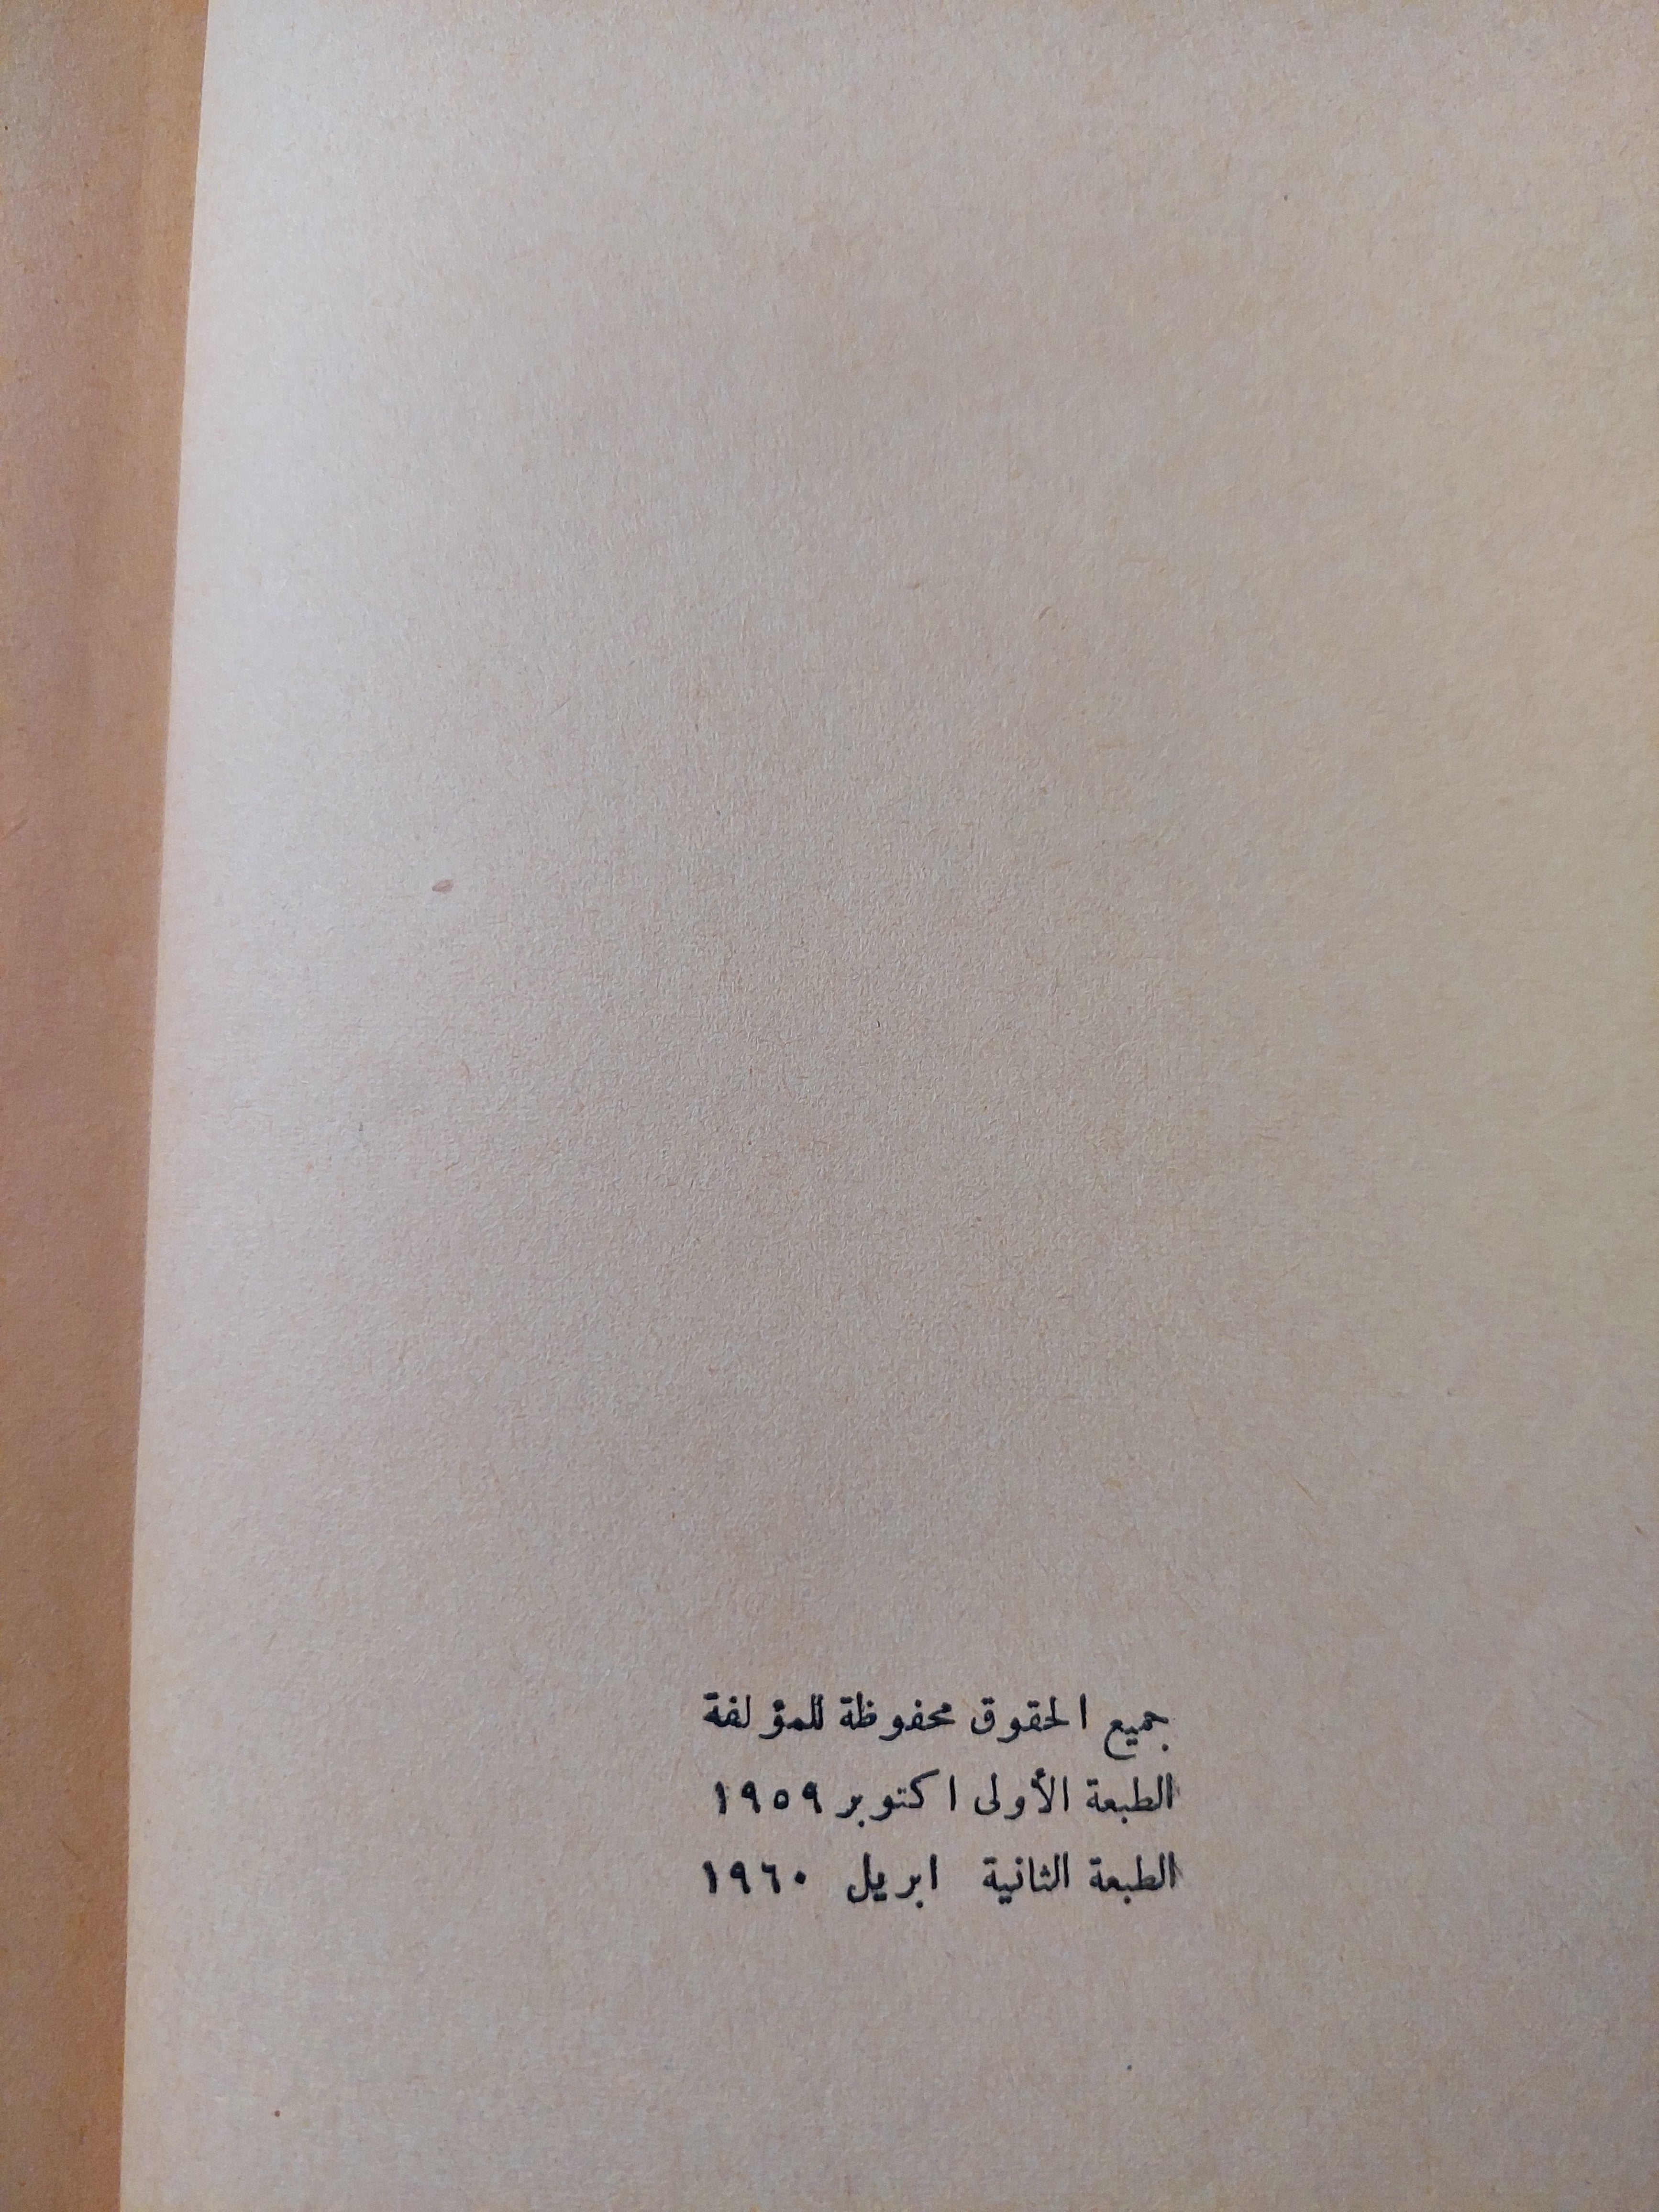 جميع الحقوق محفوظة للمؤلفة
الطبعة الأولى اكتوبر ١٩٥٩
الطبعة الثانية ابريل ١٩٦٠